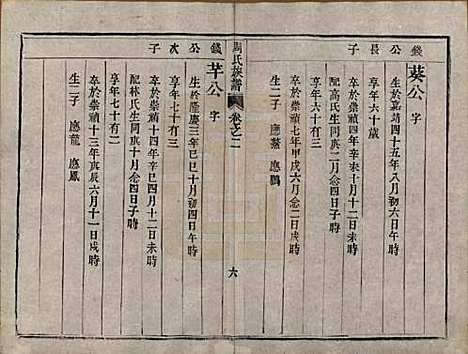 錢公長子
葵公 字
生於嘉靖四十五年八月初六日午時
卒於崇禎四年辛未十月十二日午時
享年六十歲
配高氏生同庚二月念四日子時
卒於崇禎七年甲戌六月念二日戌時
生二子 應鰲 應鵬
周氏族譜 卷之二 六
錢公次子
芉公 字
生於隆慶三年己巳十月初四日午時
卒於崇禎十四年辛巳四月十二日未時
享年七十有三
配林氏生同庚十月念四日子時
卒於崇禎十三年庚辰六月十一日戌時
享年七十有二
生二子 應龍 應鳳